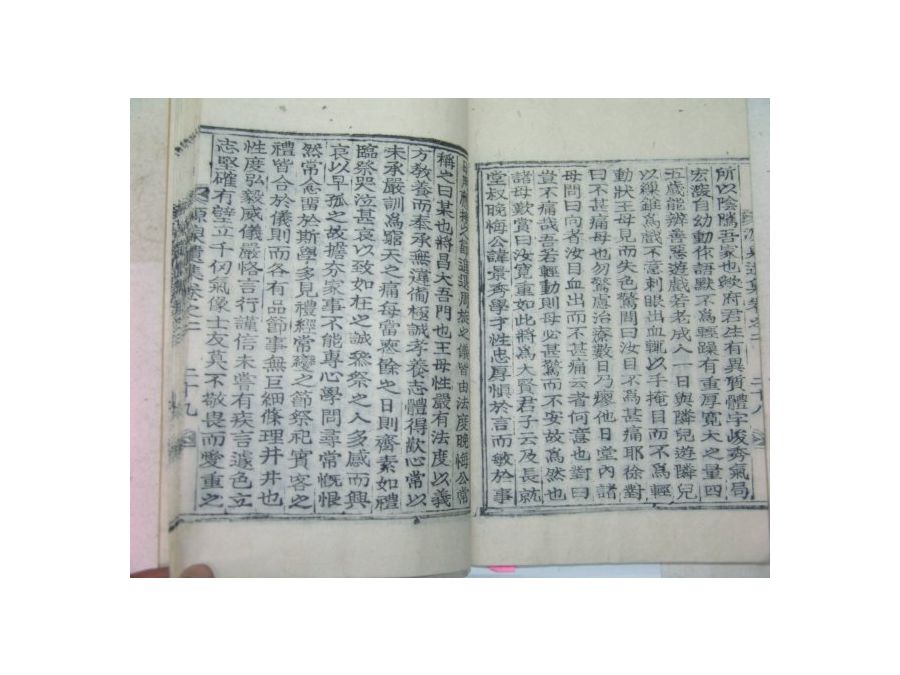 所以陰隲吾家也歟府君生有異質體宇峻秀氣局
宏濬自幼動作語默不爲輕躁有重厚寬大之量四
五歲能辨善惡遊戲若老成人一日與隣兒遊隣兒
以線錐爲戲不意刺眼出血輒以手掩目而不爲輕
動狀王母見而失色驚問曰汝目不爲甚痛耶徐對
曰不甚痛母也勿驚慮治療數日乃瘳他日堂內諸
母問曰向者汝目血出而不甚痛云者何意也對曰
豈不痛哉吾若輕動則母必甚驚而不安故爲然也
諸母歎賞曰汝寬重如此將爲大賢君子云及長就
堂叔晩悔公諱景夽學才性忠厚愼於言而敏於事
儀皆由法度晩悔公常
稱之曰某也將昌大吾門也王母性嚴有法度以義
方教養而奉承無違備極誠孝養志體得歡心常以
未承嚴訓爲窮天之痛每當喪餘之日則齊素如禮
臨祭哭泣甚哀以致如在之誠參祭之人多感而興
哀以早孤之故擔夯家事不能專心學問尋常慨恨
然常念留於斯學多見禮經常變之節祭祀賓客之
禮皆合於儀則而各有品節事無巨細條理井井也
性度弘毅威儀嚴恪言行謹信未嘗有疾言遽色立
志堅確有壁立千仞氣像士友莫不敬畏而愛重之
遺集卷之二
二十九